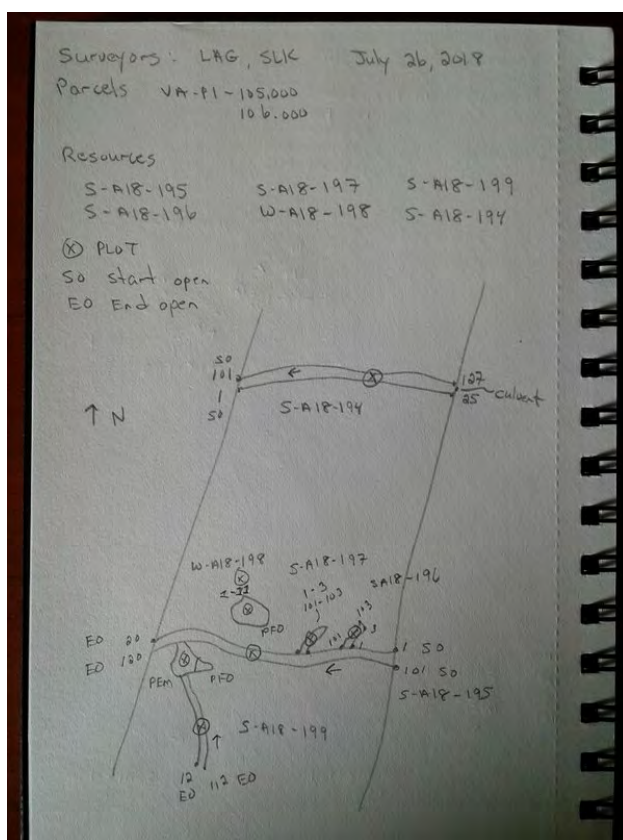 Surveyors: LAG, SLK July 26, 2018
Parcels VA-PI-105.000
106.000
Resources
S-A18-195 S-A18-197 S-A18-199
S-A18-196 W-A18-198 S-A18-194
Ⓧ PLOT
SO Start open
EO End open
SO
101
1
SO
127
25 culvert
S-A18-194
↑ N
W-A18-198
PFO
S-A18-197
1-3
101-103
SA18-196
103
3
101
1
EO 20
EO 120
1 SO
101 SO
PEM
PFO
S-A18-195
S-A18-199
12 112 EO
EO